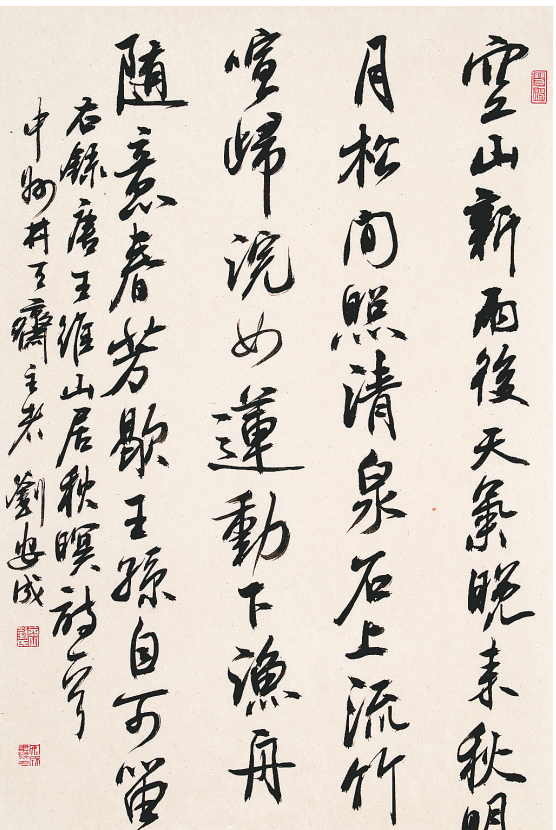 空山新雨後天氣晚来秋明
月松间照清泉石上流竹
喧歸浣女蓮動下漁舟
随意春芳歇王孫自可留
右録唐王維山居秋暝詩一首
中州井齋主劉安成